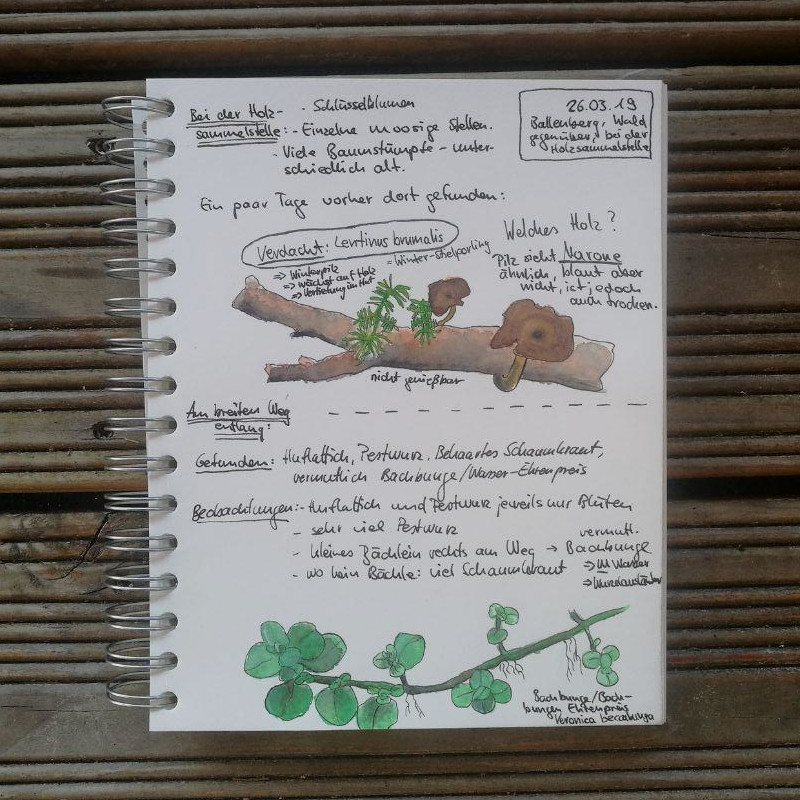 Bei der Holz-
sammelstelle:
- Schlüsselblumen
- Einzelne moosige Stellen.
- Viele Baumstümpfe - unter-
schiedlich alt.
26.03.19
Ballenberg, Wald
gegenüber, bei der
Holzsammelstelle
Ein paar Tage vorher dort gefunden:
Verdacht: Lentinus brumalis
= Winter-stielporling
=> Winterpilz
=> wächst auf Holz
=> Vertiefung im Hut
Welches Holz?
Pilz sieht Marone
ähnlich, blaut aber
nicht, ist jedoch
auch trocken.
nicht genießbar
Am breiten Weg
entlang:
Gefunden: Huflattich, Pestwurz, Behaartes Schaumkraut,
vermutlich Bachbunge/Wasser-Ehrenpreis
Beobachtungen: - Huflattich und Pestwurz jeweils nur Blüten
- sehr viel Pestwurz
- kleines Bächlein rechts am Weg → Bachbunge
vermutl.
=> im Wasser
=> Wurzelausläufer
- wo kein Bächle: viel Schaumkraut
Bachbunge/Bach-
bungen Ehrenpreis
Veronica beccabunga